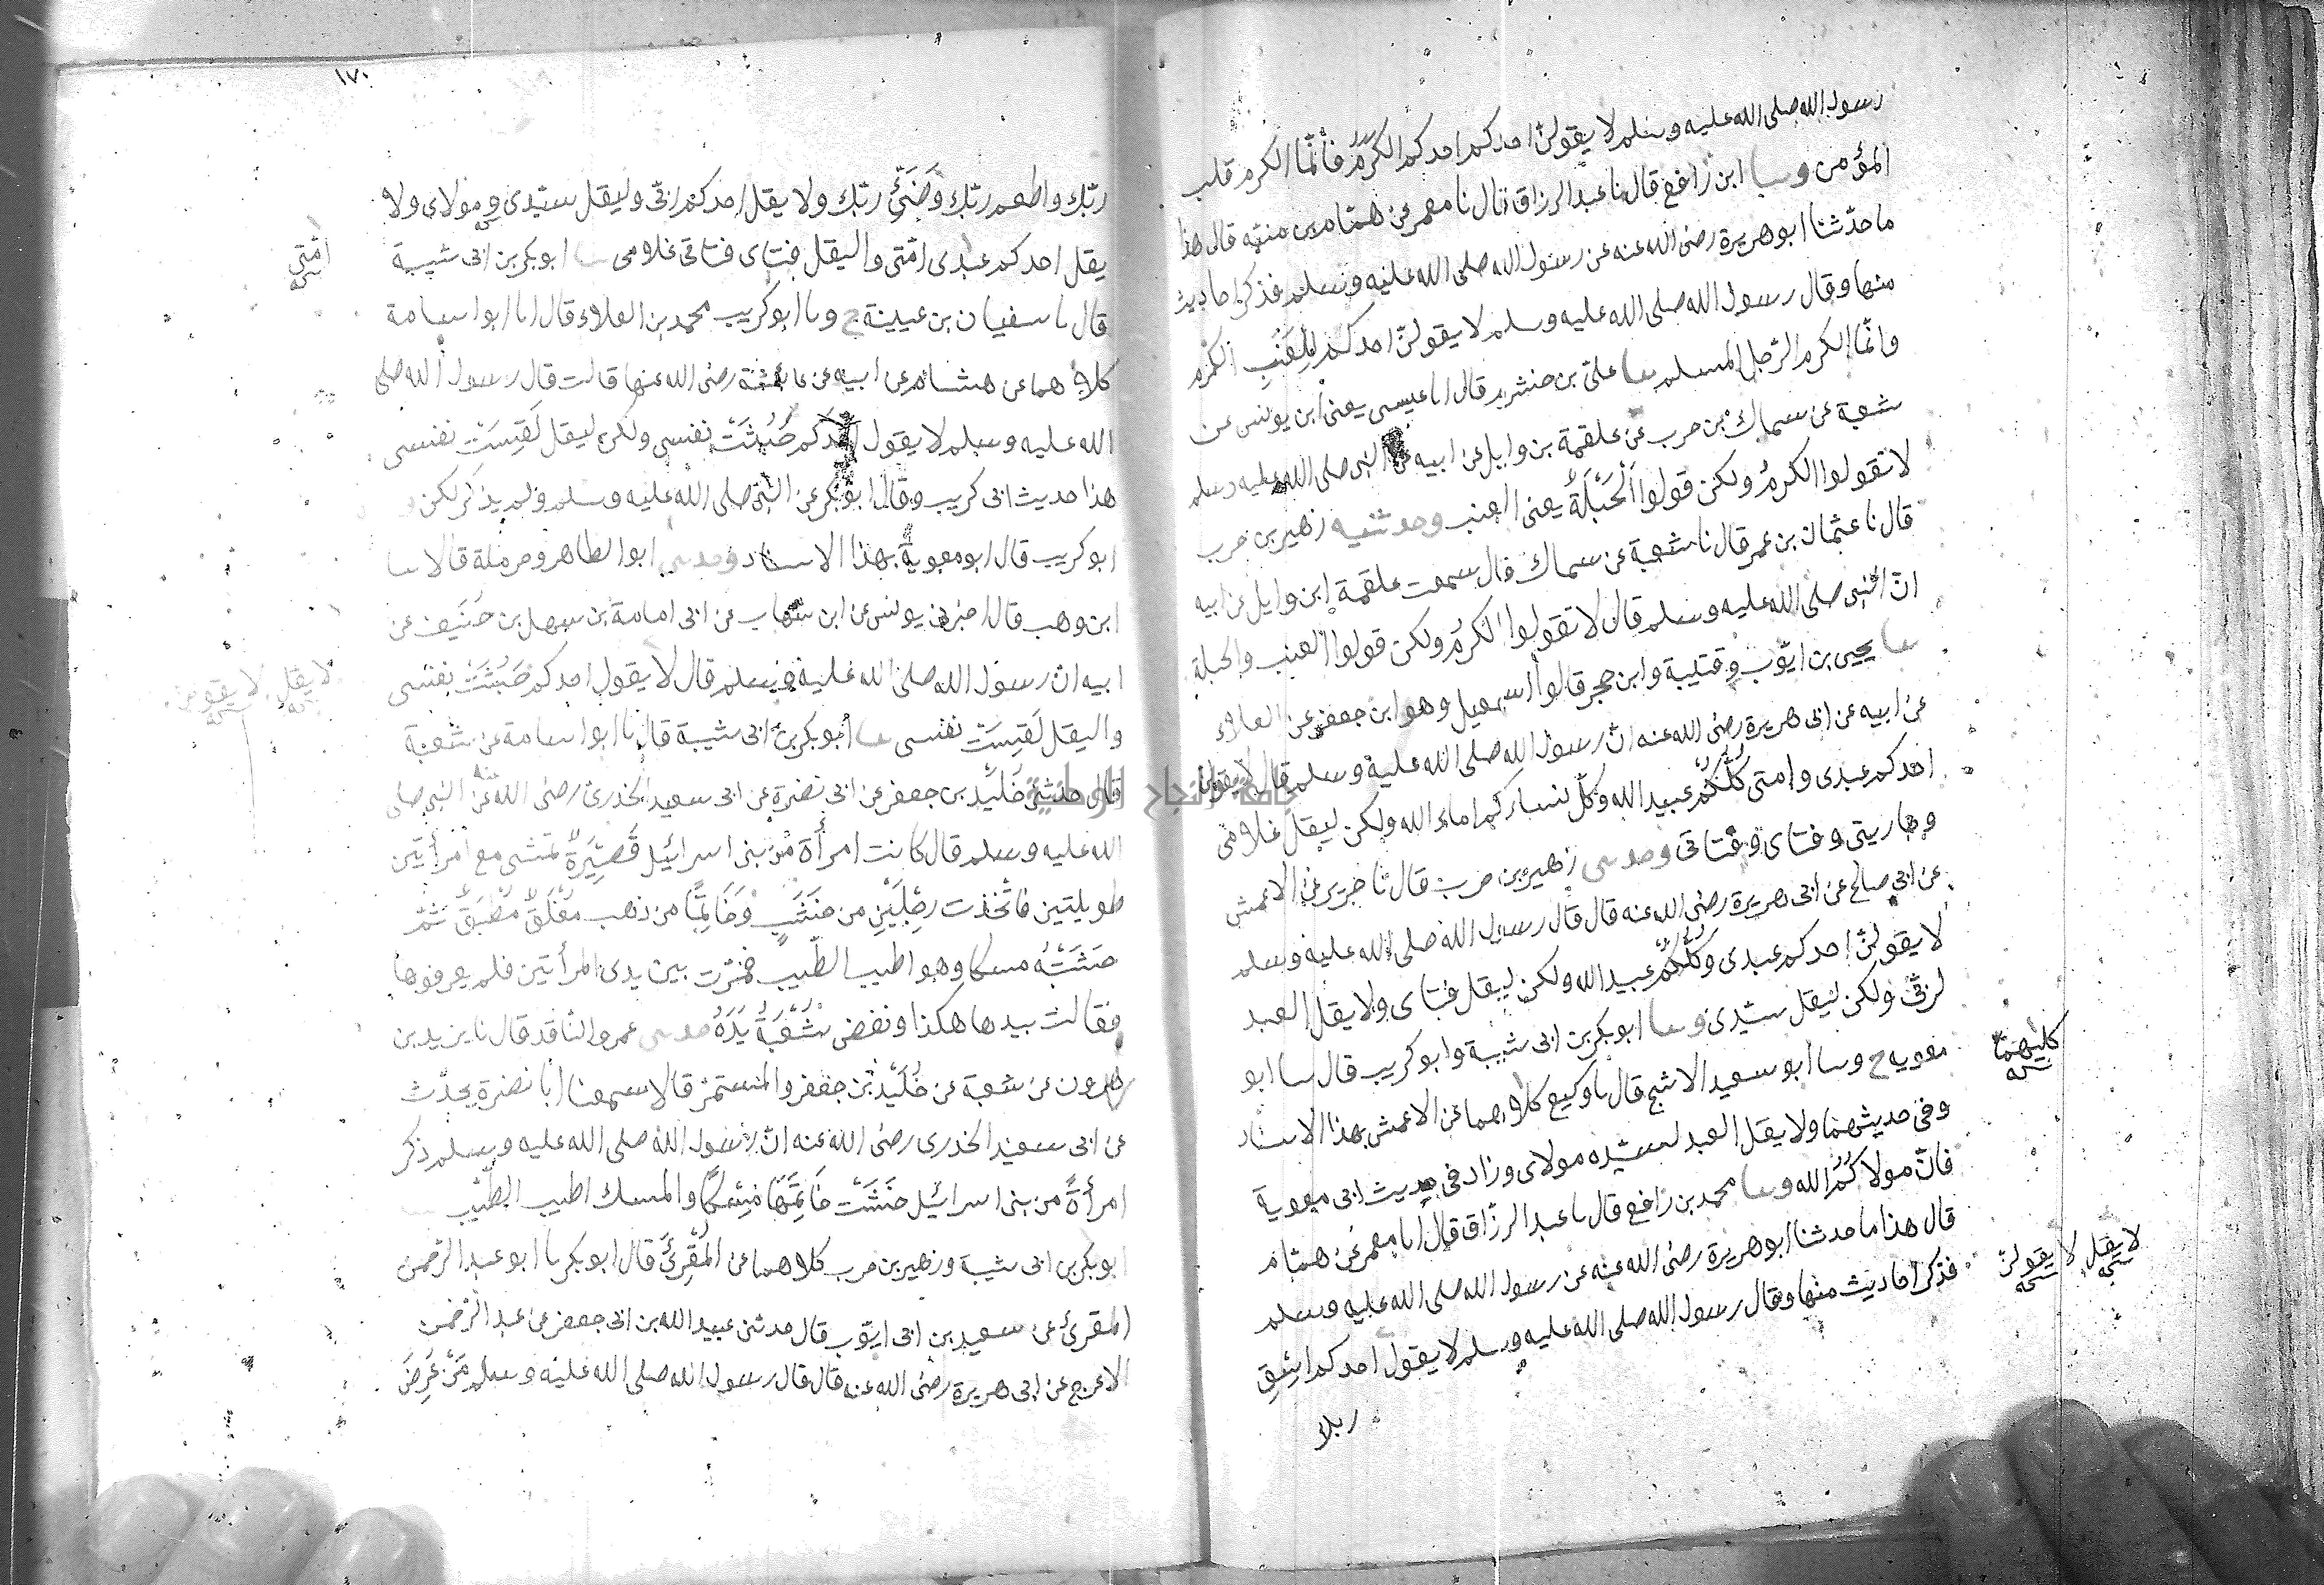 رسول الله صلى الله عليه وسلم لا يقولن احدكم احدكم الكرم فانما الكرم قلب
المؤمن وسا ابن رافع قال نا عبد الرزاق قال نا معمر عن همام بن منبه قال هذا
ما حدثنا ابو هريرة رضى الله عنه عن رسول الله صلى الله عليه وسلم فذكر احاديث
منها وقال رسول الله صلى الله عليه وسلم لا يقولن احدكم للعنب الكرم
وانما الكرم الرجل المسلم سا على بن خشرم قال انا عيسى يعنى ابن يونس عن
شعبة عن سماك بن حرب عن علقمة بن وايل عن ابيه عن النبى صلى الله عليه وسلم
لا تقولوا الكرم ولكن قولوا الحَبَلَةُ يعنى العنب وحدثنيه زهير بن حرب
قال نا عثمان بن عمر قال نا شعبة عن سماك قال سمعت علقمة ابن وايل عن ابيه
ان النبى صلى الله عليه وسلم قال لا تقولوا الكرم ولكن قولوا العنب والحبلة
سا يحيى بن ايوب وقتيبة وابن حجر قالوا اسمعيل وهو ابن جعفر عن العلاء
عن ابيه عن ابى هريرة رضى الله عنه ان رسول الله صلى الله عليه وسلم قال لا يقولن
احدكم عبدى وامتى كُلُّكُم عبيد الله وكل نساركم اماء الله ولكن ليقل غلامى
وجاريتى وفتاى وفتاتى وحدسى زهير بن حرب قال نا جرير عن الاعمش
عن ابى صالح عن ابى هريرة رضى الله عنه قال قال رسول الله صلى الله عليه وسلم
لا يقولن احدكم عبدى وكُلُّكُم عبيد الله ولكن ليقل فتاى ولا يقل العبد
لربى ولكن ليقل سيدى وسا ابو بكر بن ابى شيبة وابو كريب قال سا ابو
معويه ح وسا ابو سعيد الاشج قال نا وكيع كلاهما عن الاعمش بهذا الاسناد
كليهما
وفى حديثهما ولا يقل العبد لسيده مولاى وزاد فى حديث ابى معوية
فان مولاكُمُ الله وسا محمد بن رافع قال نا عبد الرزاق قال انا معمر عن همام
قال هذا ما حدثنا ابو هريرة رضى الله عنه عن رسول الله صلى الله عليه وسلم
لا يقل لا يقولن
فذكر احاديث منها وقال رسول الله صلى الله عليه وسلم لا يقول احدكم اسق
ربك
١٧٠
ربك واطعم ربك وَضِّئْ ربك ولا يقل احدكم ربى وليقل سيدى ومولاى ولا
يقل احدكم عبدى امتى واليقل فتاى فتاتى غلامى سا ابو بكر بن ابى شيبة
امتى
قال نا سفيان بن عيينة ح ونا ابو كريب محمد بن العلاء قال انا ابو اسامة
كلاهما عن هشام عن ابيه عن عائشة رضى الله عنها قالت قال رسول الله صلى
الله عليه وسلم لا يقول احدكم خَبُثَتْ نفسى ولكن ليقل لَقِسَتْ نفسى
هذا حديث ابى كريب وقال ابو بكر عن النبى صلى الله عليه وسلم ولم يذكر لكن
ابو كريب قال ابو معوية بهذا الاسناد وحدسى ابو الطاهر وحرملة قالا سا
ابن وهب قال اخبرنى يونس عن ابن شهاب عن ابى امامة بن سهل بن حُنَيف عن
ابيه ان رسول الله صلى الله عليه وسلم قال لا يقول احدكم خَبُثَتْ نفسى
لا يقل لا يقولن
واليقل لَقِسَتْ نفسى سا ابو بكر بن ابى شيبة قال نا ابو اسامة عن شعبة
قال حدثنى خُلَيد بن جعفر عن ابى نضرة عن ابى سعيد الخدرى رضى الله عنه عن النبى صلى
الله عليه وسلم قال كانت امرأة من بنى اسرائيل قَصِيرَةٌ تمشى مع امرأتين
طويلتين فاتخذت رِجْلَيْنِ من خَشَبٍ وَخَاتَمًا من ذهب مُغْلَقٌ مُطْبَقٌ ثم
حَشَتْهُ مسكا وهو اطيب الطيب فمرت بين يدى المرأتين فلم يعرفوها
فقالت بيدها هكذا ونفض شُعْبَةُ يَدَهُ حدسى عمرو الناقد قال نا يزيد بن
هرون عن شعبة عن خُلَيْد بن جعفر والمستمر قالا سمعنا ابا نضرة يحدث
عن ابى سعيد الخدرى رضى الله عنه ان رسول الله صلى الله عليه وسلم ذكر
امرأةً من بنى اسرائيل حَشَتْ خَاتَمَهَا مِسْكًا والمسك اطيب الطيب
ابو بكر بن ابى شيبة وزهير بن حرب كلاهما عن المُقْرِئ قال ابو بكر نا ابو عبد الرحمن
المقرئ عن سعيد بن ابى ايوب قال حدثنى عبيد الله بن ابى جعفر عن عبد الرحمن
الاعرج عن ابى هريرة رضى الله عنه قال قال رسول الله صلى الله عليه وسلم مَنْ عُرِضَ
جامعة النجاح الوطنية